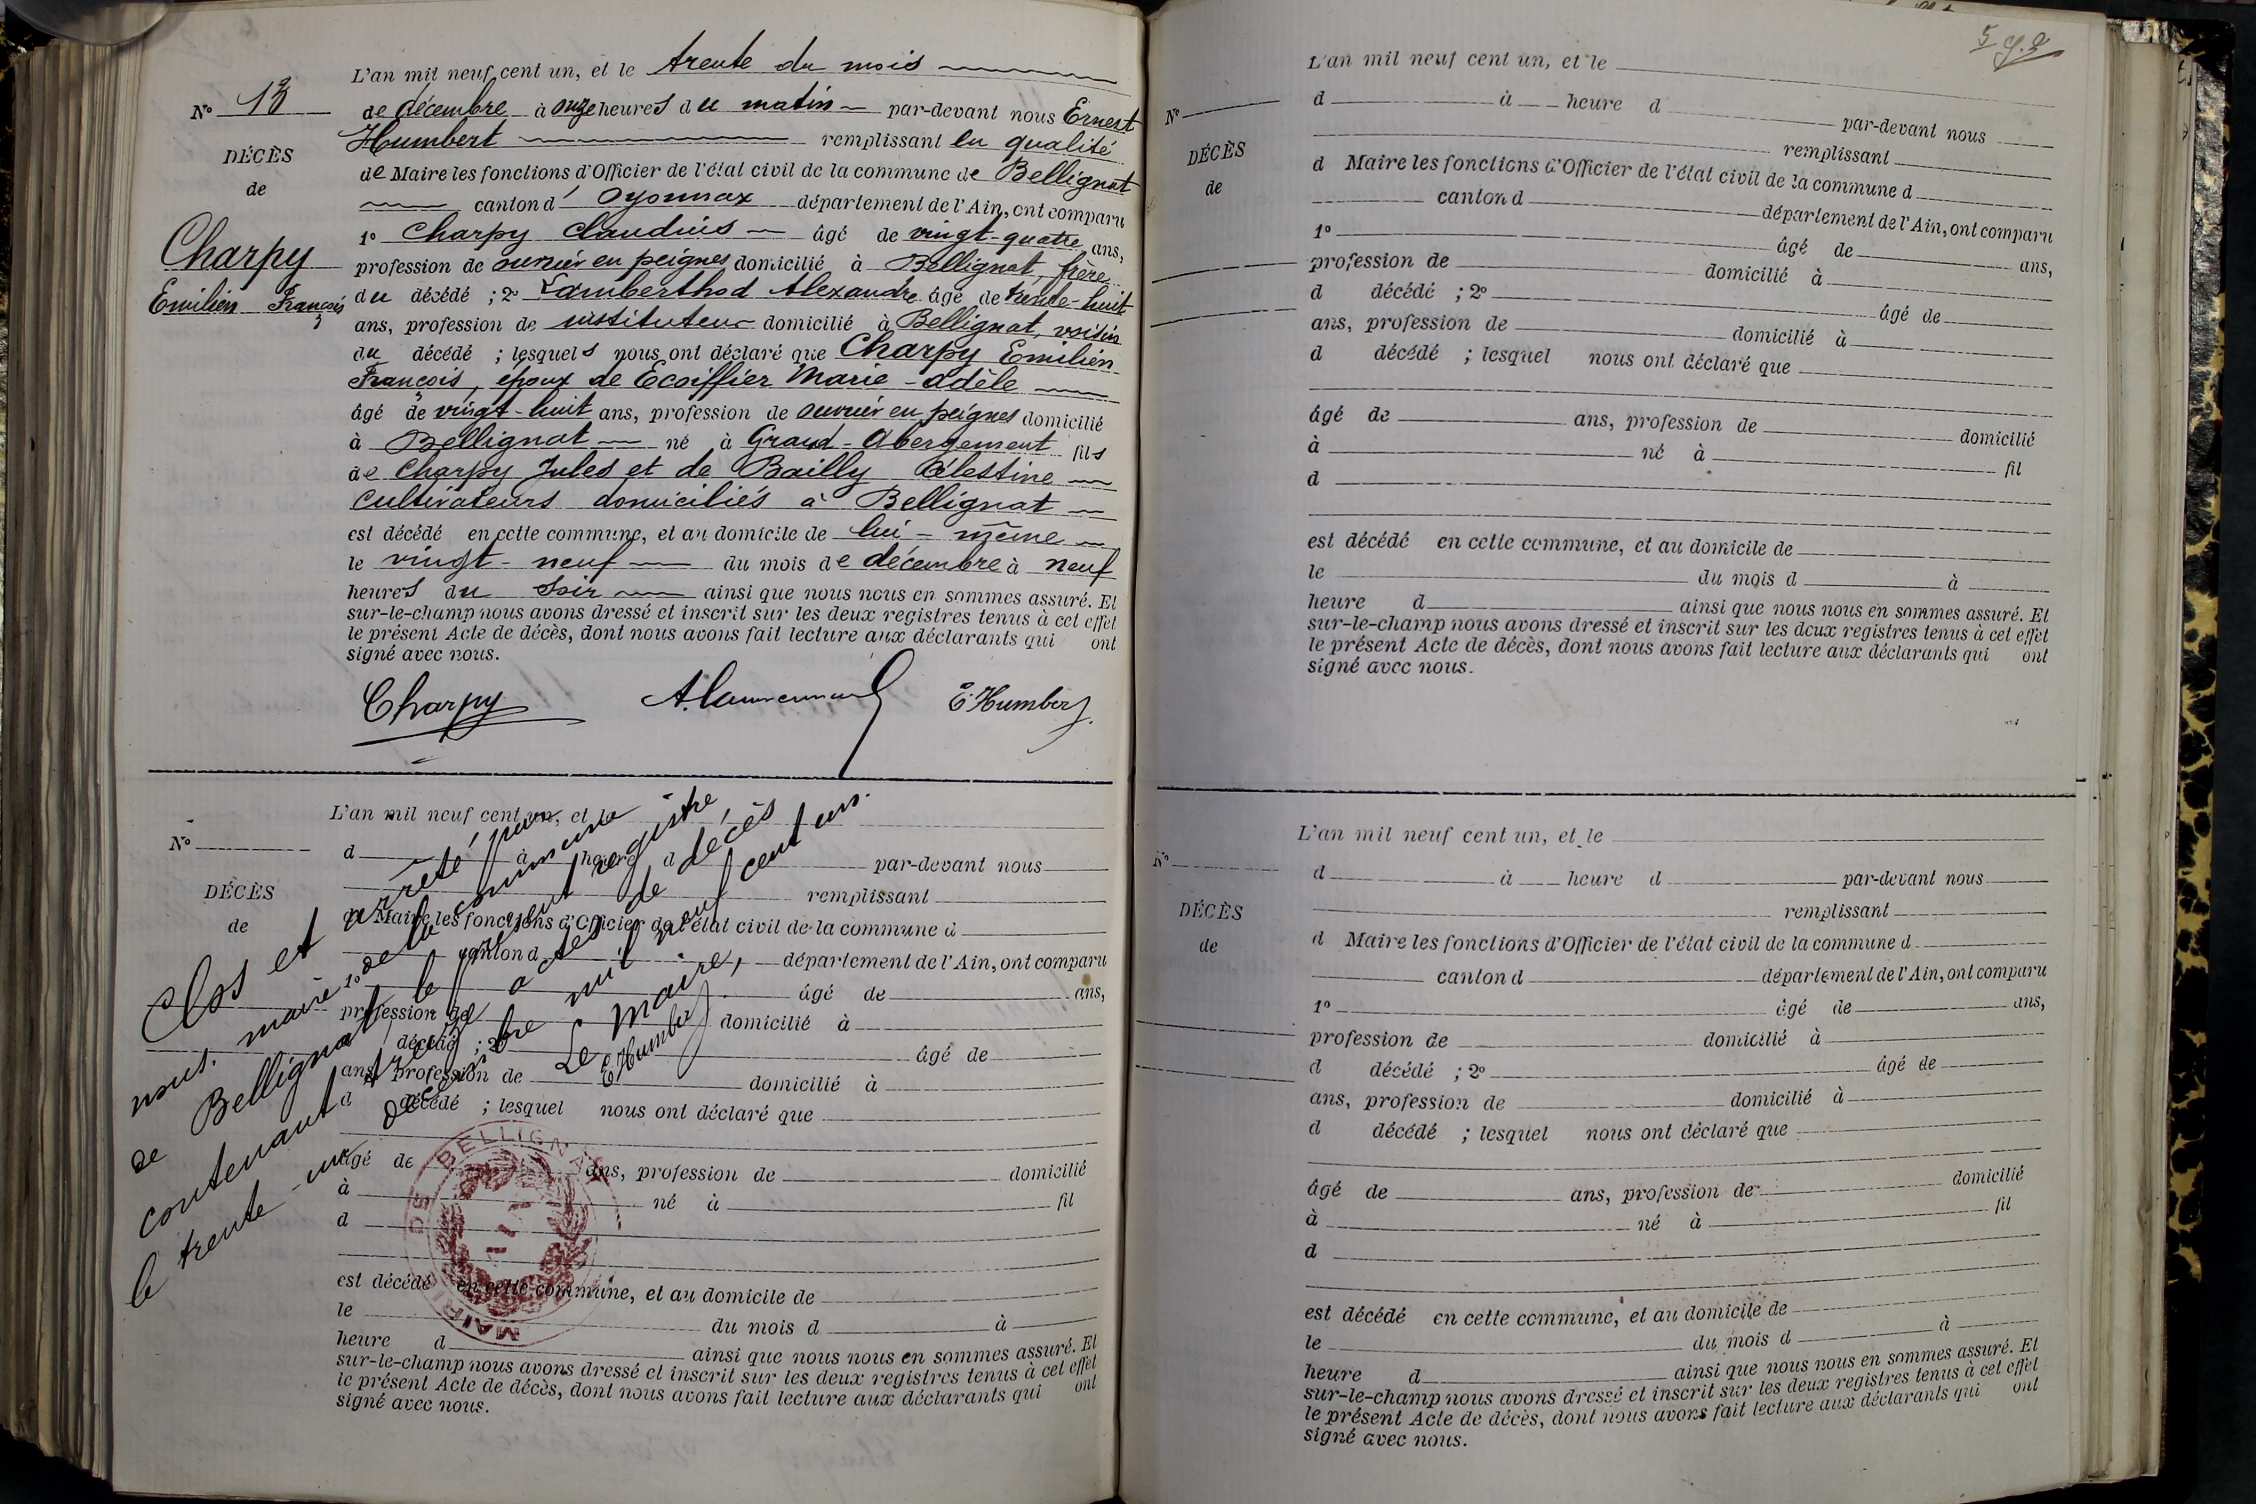 L'an mil neuf cent un, et le trente du mois
No 13
de décembre à onze heures du matin par-devant nous Ernest
Humbert remplissant en qualité
DÉCÈS
de Maire les fonctions d'Officier de l'état civil de la commune de Bellignat
de
canton d'Oyonnax département de l'Ain, ont comparu
1o Charpy Claudius âgé de vingt-quatre ans,
Charpy
profession de ouvrier en peignes domicilié à Bellignat, frère
Emilien François
du décédé ; 2o Lamberthod Alexandre âgé de trente-huit
ans, profession de instituteur domicilié à Bellignat, voisin
du décédé ; lesquels nous ont déclaré que Charpy Emilien
François, époux de Ecoiffier Marie-Adèle
âgé de vingt-huit ans, profession de ouvrier en peignes domicilié
à Bellignat né à Grand-Abergement fils
de Charpy Jules et de Bailly Célestine
cultivateurs domiciliés à Bellignat
est décédé en cette commune, et au domicile de lui-même
le vingt-neuf du mois de décembre à neuf
heures du soir ainsi que nous nous en sommes assuré. Et
sur-le-champ nous avons dressé et inscrit sur les deux registres tenus à cet effet
le présent Acte de décès, dont nous avons fait lecture aux déclarants qui ont
signé avec nous.
Charpy
E. Humbert
L'an mil neuf cent un, et le
No
d à heure d par-devant nous
remplissant
DÉCÈS
d Maire les fonctions d'Officier de l'état civil de la commune d
de
canton d département de l'Ain, ont comparu
1o âgé de ans,
profession de domicilié à
d décédé ; 2o âgé de
ans, profession de domicilié à
d décédé ; lesquel nous ont déclaré que
âgé de ans, profession de domicilié
à né à fil
d
est décédé en cette commune, et au domicile de
le du mois d à
heure d ainsi que nous nous en sommes assuré. Et
sur-le-champ nous avons dressé et inscrit sur les deux registres tenus à cet effet
le présent Acte de décès, dont nous avons fait lecture aux déclarants qui ont
signé avec nous.
Clos et arrêté par
nous, maire de la commune
de Bellignat, le présent registre
contenant treize actes de décès
le trente-un décembre mil neuf cent un.
Le Maire,
E. Humbert
MAIRIE DE BELLIGNAT
L'an mil neuf cent un, et le
No
d à heure d par-devant nous
remplissant
DÉCÈS
d Maire les fonctions d'Officier de l'état civil de la commune d
de
canton d département de l'Ain, ont comparu
1o âgé de ans,
profession de domicilié à
d décédé ; 2o âgé de
ans, profession de domicilié à
d décédé ; lesquel nous ont déclaré que
âgé de ans, profession de domicilié
à né à fil
d
est décédé en cette commune, et au domicile de
le du mois d à
heure d ainsi que nous nous en sommes assuré. Et
sur-le-champ nous avons dressé et inscrit sur les deux registres tenus à cet effet
le présent Acte de décès, dont nous avons fait lecture aux déclarants qui ont
signé avec nous.
L'an mil neuf cent un, et le
No
d à heure d par-devant nous
remplissant
DÉCÈS
d Maire les fonctions d'Officier de l'état civil de la commune d
de
canton d département de l'Ain, ont comparu
1o âgé de ans,
profession de domicilié à
d décédé ; 2o âgé de
ans, profession de domicilié à
d décédé ; lesquel nous ont déclaré que
âgé de ans, profession de domicilié
à né à fil
d
est décédé en cette commune, et au domicile de
le du mois d à
heure d ainsi que nous nous en sommes assuré. Et
sur-le-champ nous avons dressé et inscrit sur les deux registres tenus à cet effet
le présent Acte de décès, dont nous avons fait lecture aux déclarants qui ont
signé avec nous.